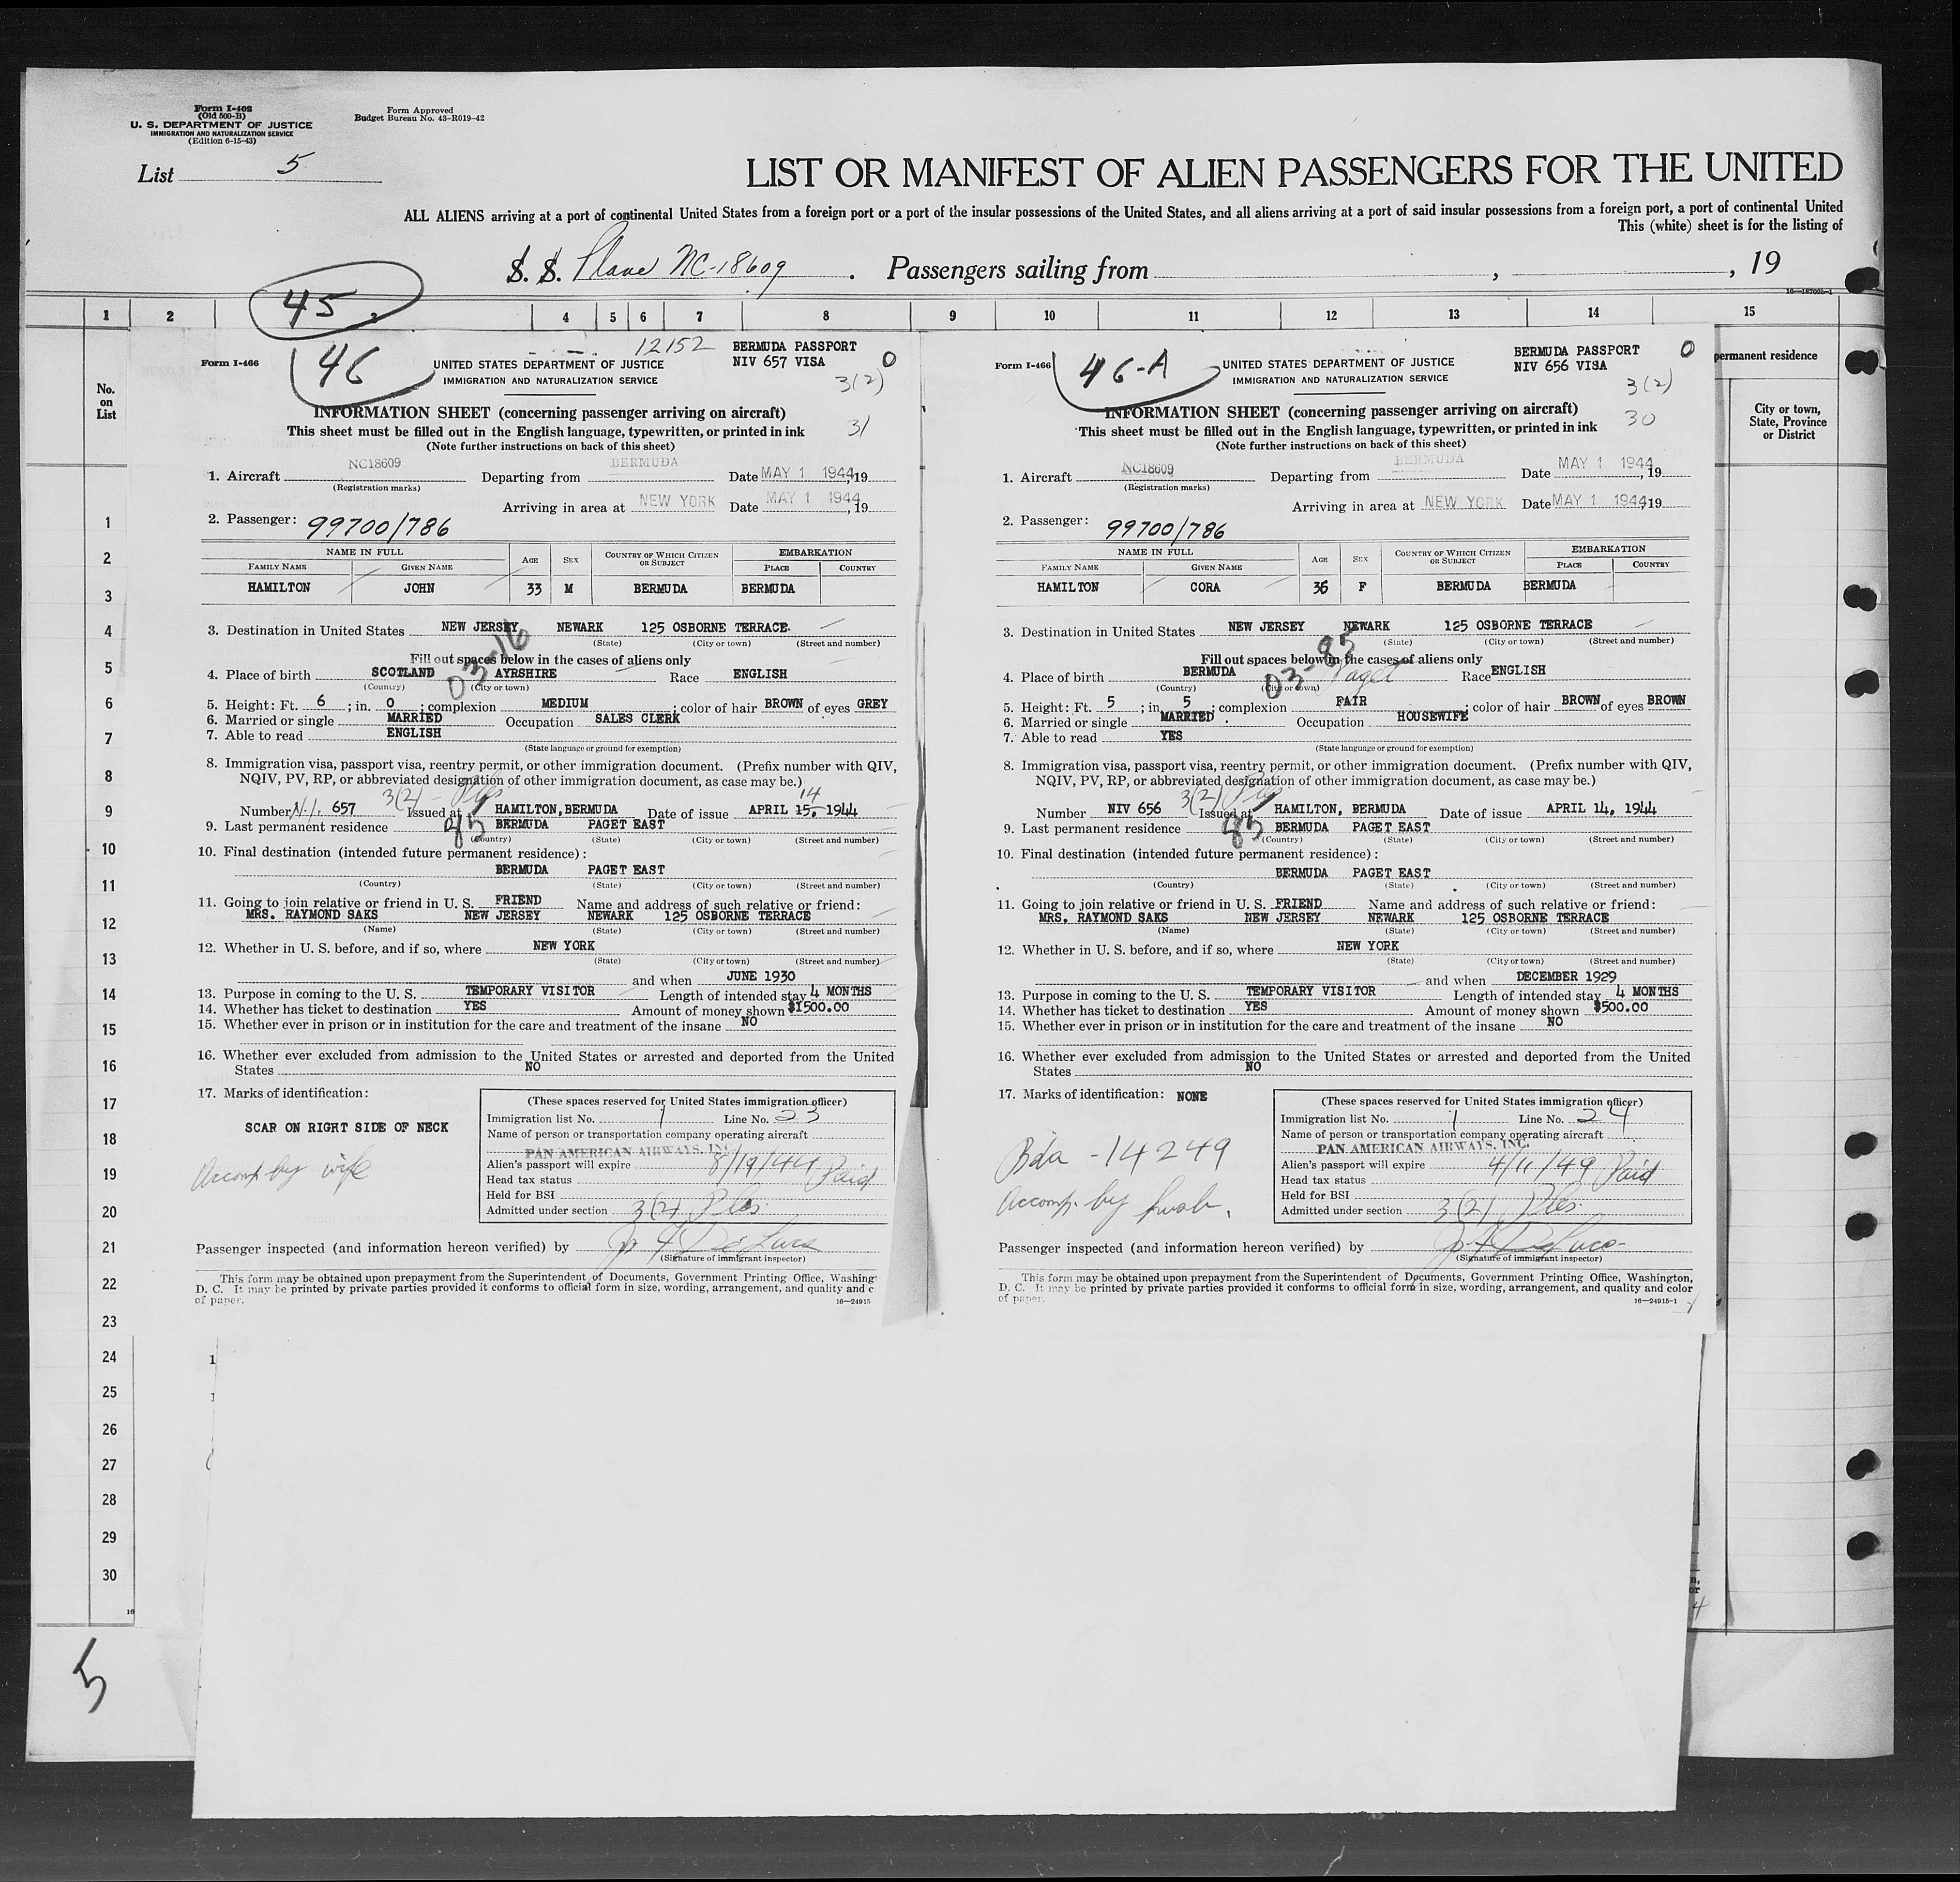 Form I-402
(Old 500-B)
U. S. DEPARTMENT OF JUSTICE
IMMIGRATION AND NATURALIZATION SERVICE
(Edition 6-15-43)
Form Approved
Budget Bureau No. 43-R019-42
List 5
LIST OR MANIFEST OF ALIEN PASSENGERS FOR THE UNITED
ALL ALIENS arriving at a port of continental United States from a foreign port or a port of the insular possessions of the United States, and all aliens arriving at a port of said insular possessions from a foreign port, a port of continental United
This (white) sheet is for the listing of
S. S. Plane NC-18609. Passengers sailing from , , 19
16—18700b-1
45
1 2 3 4 5 6 7 8 9 10 11 12 13 14 15
No. on List
permanent residence
City or town, State, Province or District
1
2
3
4
5
6
7
8
9
10
11
12
13
14
15
16
17
18
19
20
21
22
23
24
25
26
27
28
29
30
16
5
12152
BERMUDA PASSPORT
NIV 657 VISA
0
Form I-466
46
UNITED STATES DEPARTMENT OF JUSTICE
IMMIGRATION AND NATURALIZATION SERVICE
3(2)
INFORMATION SHEET (concerning passenger arriving on aircraft)
This sheet must be filled out in the English language, typewritten, or printed in ink
31
(Note further instructions on back of this sheet)
1. Aircraft NC18609 Departing from BERMUDA Date MAY 1 1944, 19
(Registration marks)
Arriving in area at NEW YORK Date MAY 1 1944, 19
2. Passenger: 99700/786
NAME IN FULL AGE SEX COUNTRY OF WHICH CITIZEN OR SUBJECT EMBARKATION
FAMILY NAME GIVEN NAME PLACE COUNTRY
HAMILTON JOHN 33 M BERMUDA BERMUDA
3. Destination in United States NEW JERSEY NEWARK 125 OSBORNE TERRACE
(State) (City or town) (Street and number)
03-16
Fill out spaces below in the cases of aliens only
4. Place of birth SCOTLAND AYRSHIRE Race ENGLISH
(Country) (City or town)
5. Height: Ft. 6; in. 0; complexion MEDIUM; color of hair BROWN of eyes GREY
6. Married or single MARRIED Occupation SALES CLERK
7. Able to read ENGLISH
(State language or ground for exemption)
8. Immigration visa, passport visa, reentry permit, or other immigration document. (Prefix number with QIV,
NQIV, PV, RP, or abbreviated designation of other immigration document, as case may be.)
3(2) - Pls 14
Number N.I. 657 Issued at HAMILTON, BERMUDA Date of issue APRIL 15, 1944
85
9. Last permanent residence BERMUDA PAGET EAST
(Country) (State) (City or town) (Street and number)
10. Final destination (intended future permanent residence):
BERMUDA PAGET EAST
(Country) (State) (City or town) (Street and number)
11. Going to join relative or friend in U. S. FRIEND Name and address of such relative or friend:
MRS. RAYMOND SAKS NEW JERSEY NEWARK 125 OSBORNE TERRACE
(Name) (State) (City or town) (Street and number)
12. Whether in U. S. before, and if so, where NEW YORK
(State) (City or town) (Street and number)
and when JUNE 1930
13. Purpose in coming to the U. S. TEMPORARY VISITOR Length of intended stay 4 MONTHS
14. Whether has ticket to destination YES Amount of money shown $1500.00
15. Whether ever in prison or in institution for the care and treatment of the insane NO
16. Whether ever excluded from admission to the United States or arrested and deported from the United
States NO
17. Marks of identification:
SCAR ON RIGHT SIDE OF NECK
Accomp by wife
(These spaces reserved for United States immigration officer)
Immigration list No. 1 Line No. 23
Name of person or transportation company operating aircraft
PAN AMERICAN AIRWAYS, INC.
Alien's passport will expire 8/19/44 Paid
Head tax status
Held for BSI
Admitted under section 3(2) Pls.
Passenger inspected (and information hereon verified) by
(Signature of immigrant inspector)
This form may be obtained upon prepayment from the Superintendent of Documents, Government Printing Office, Washing
D. C. It may be printed by private parties provided it conforms to official form in size, wording, arrangement, and quality and c
of paper. 16—24915
BERMUDA PASSPORT
NIV 656 VISA
0
Form I-466
46-A
UNITED STATES DEPARTMENT OF JUSTICE
IMMIGRATION AND NATURALIZATION SERVICE
3(2)
INFORMATION SHEET (concerning passenger arriving on aircraft)
This sheet must be filled out in the English language, typewritten, or printed in ink
30
(Note further instructions on back of this sheet)
1. Aircraft NC18609 Departing from BERMUDA Date MAY 1 1944, 19
(Registration marks)
Arriving in area at NEW YORK Date MAY 1 1944, 19
2. Passenger: 99700/786
NAME IN FULL AGE SEX COUNTRY OF WHICH CITIZEN OR SUBJECT EMBARKATION
FAMILY NAME GIVEN NAME PLACE COUNTRY
HAMILTON CORA 36 F BERMUDA BERMUDA
3. Destination in United States NEW JERSEY NEWARK 125 OSBORNE TERRACE
(State) (City or town) (Street and number)
03-85
Fill out spaces below in the cases of aliens only
4. Place of birth BERMUDA Paget Race ENGLISH
(Country) (City or town)
5. Height: Ft. 5; in 5; complexion FAIR; color of hair BROWN of eyes BROWN
6. Married or single MARRIED. Occupation HOUSEWIFE
7. Able to read YES
(State language or ground for exemption)
8. Immigration visa, passport visa, reentry permit, or other immigration document. (Prefix number with QIV,
NQIV, PV, RP, or abbreviated designation of other immigration document, as case may be.)
3(2) Pls
Number NIV 656 Issued at HAMILTON, BERMUDA Date of issue APRIL 14, 1944
85
9. Last permanent residence BERMUDA PAGET EAST
(Country) (State) (City or town) (Street and number)
10. Final destination (intended future permanent residence):
BERMUDA PAGET EAST
(Country) (State) (City or town) (Street and number)
11. Going to join relative or friend in U. S. FRIEND Name and address of such relative or friend:
MRS. RAYMOND SAKS NEW JERSEY NEWARK 125 OSBORNE TERRACE
(Name) (State) (City or town) (Street and number)
12. Whether in U. S. before, and if so, where NEW YORK
(State) (City or town) (Street and number)
and when DECEMBER 1929
13. Purpose in coming to the U. S. TEMPORARY VISITOR Length of intended stay 4 MONTHS
14. Whether has ticket to destination YES Amount of money shown $500.00
15. Whether ever in prison or in institution for the care and treatment of the insane NO
16. Whether ever excluded from admission to the United States or arrested and deported from the United
States NO
17. Marks of identification: NONE
Bda - 14249
Accomp. by husb.
(These spaces reserved for United States immigration officer)
Immigration list No. 1 Line No. 24
Name of person or transportation company operating aircraft
PAN AMERICAN AIRWAYS, INC.
Alien's passport will expire 4/11/49 Paid
Head tax status
Held for BSI
Admitted under section 3(2) Pls.
Passenger inspected (and information hereon verified) by
(Signature of immigrant inspector)
This form may be obtained upon prepayment from the Superintendent of Documents, Government Printing Office, Washington,
D. C. It may be printed by private parties provided it conforms to official form in size, wording, arrangement, and quality and color
of paper. 16—24915-1